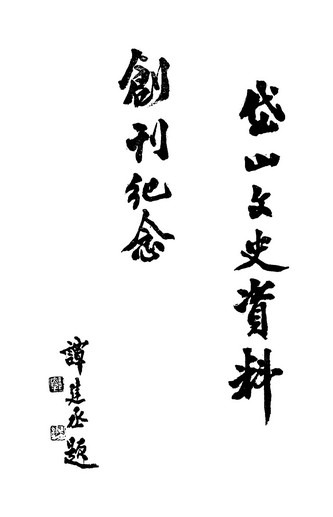 岱山文史資料
創刊纪念
譚建丞題